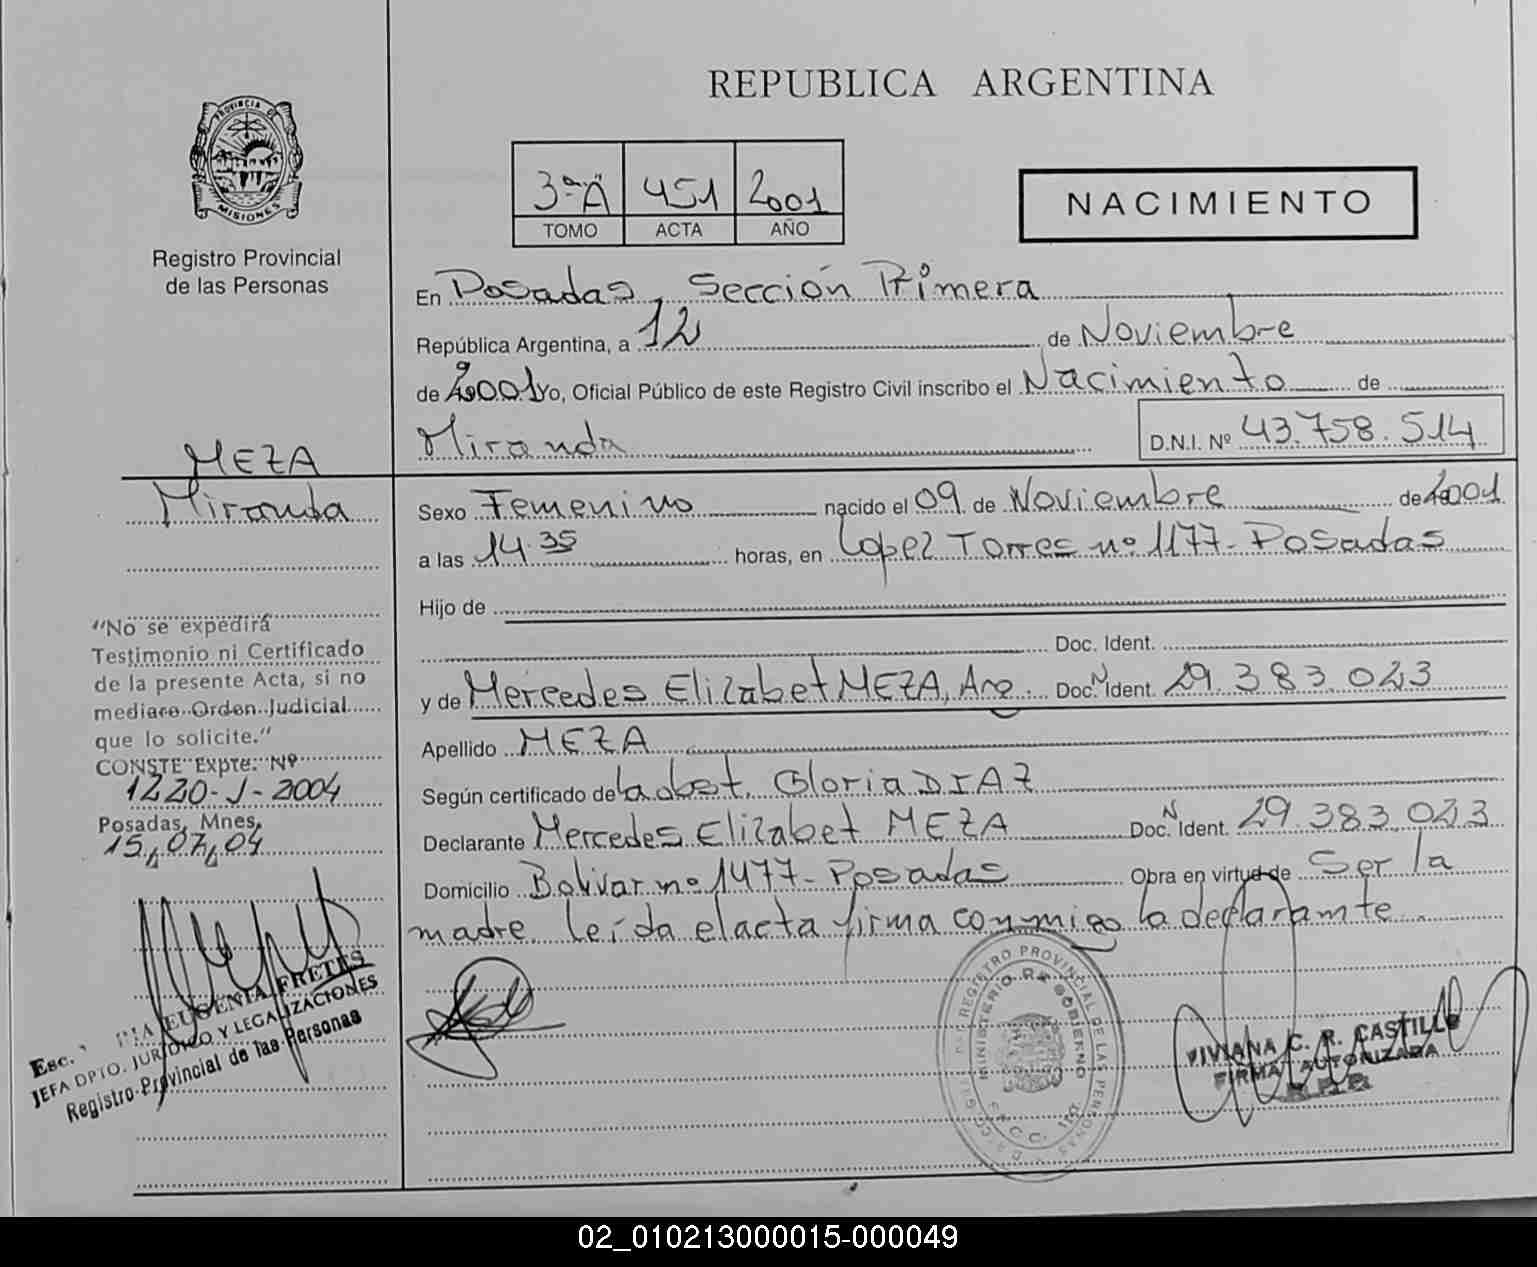 REPUBLICA ARGENTINA
PROVINCIA DE
MISIONES
Registro Provincial
de las Personas
3ª A 451 2001
TOMO ACTA AÑO
NACIMIENTO
En Posadas, Sección Primera
República Argentina, a 12 de Noviembre
de 2001 Yo, Oficial Público de este Registro Civil inscribo el Nacimiento de
Miranda D.N.I. Nº 43.758.514
MEZA
Miranda
Sexo Femenino nacido el 09 de Noviembre de 2001
a las 14.35 horas, en Lopez Torres nº 1177- Posadas
Hijo de
Doc. Ident.
y de Mercedes Elizabet MEZA, Arg. Doc. N Ident. 29.383.023
Apellido MEZA
Según certificado de la obst. Gloria DIAZ
Declarante Mercedes Elizabet MEZA Doc. N Ident. 29.383.023
Domicilio Bolivar nº 1477- Posadas Obra en virtud de Ser la
madre leída el acta firma conmigo la declarante
"No se expedirá
Testimonio ni Certificado
de la presente Acta, si no
mediare Orden Judicial
que lo solicite."
CONSTE Expte. Nº
1220-J-2004
Posadas, Mnes,
15,07,04
Esc. EUGENIA FRETES
JEFA DPTO. JURIDICO Y LEGALIZACIONES
Registro Provincial de las Personas
REGISTRO PROVINCIAL DE LAS PERSONAS
MINISTERIO DE GOBIERNO
VIVIANA C. R. CASTILLO
FIRMA AUTORIZADA
R.P.P.
02_010213000015-000049